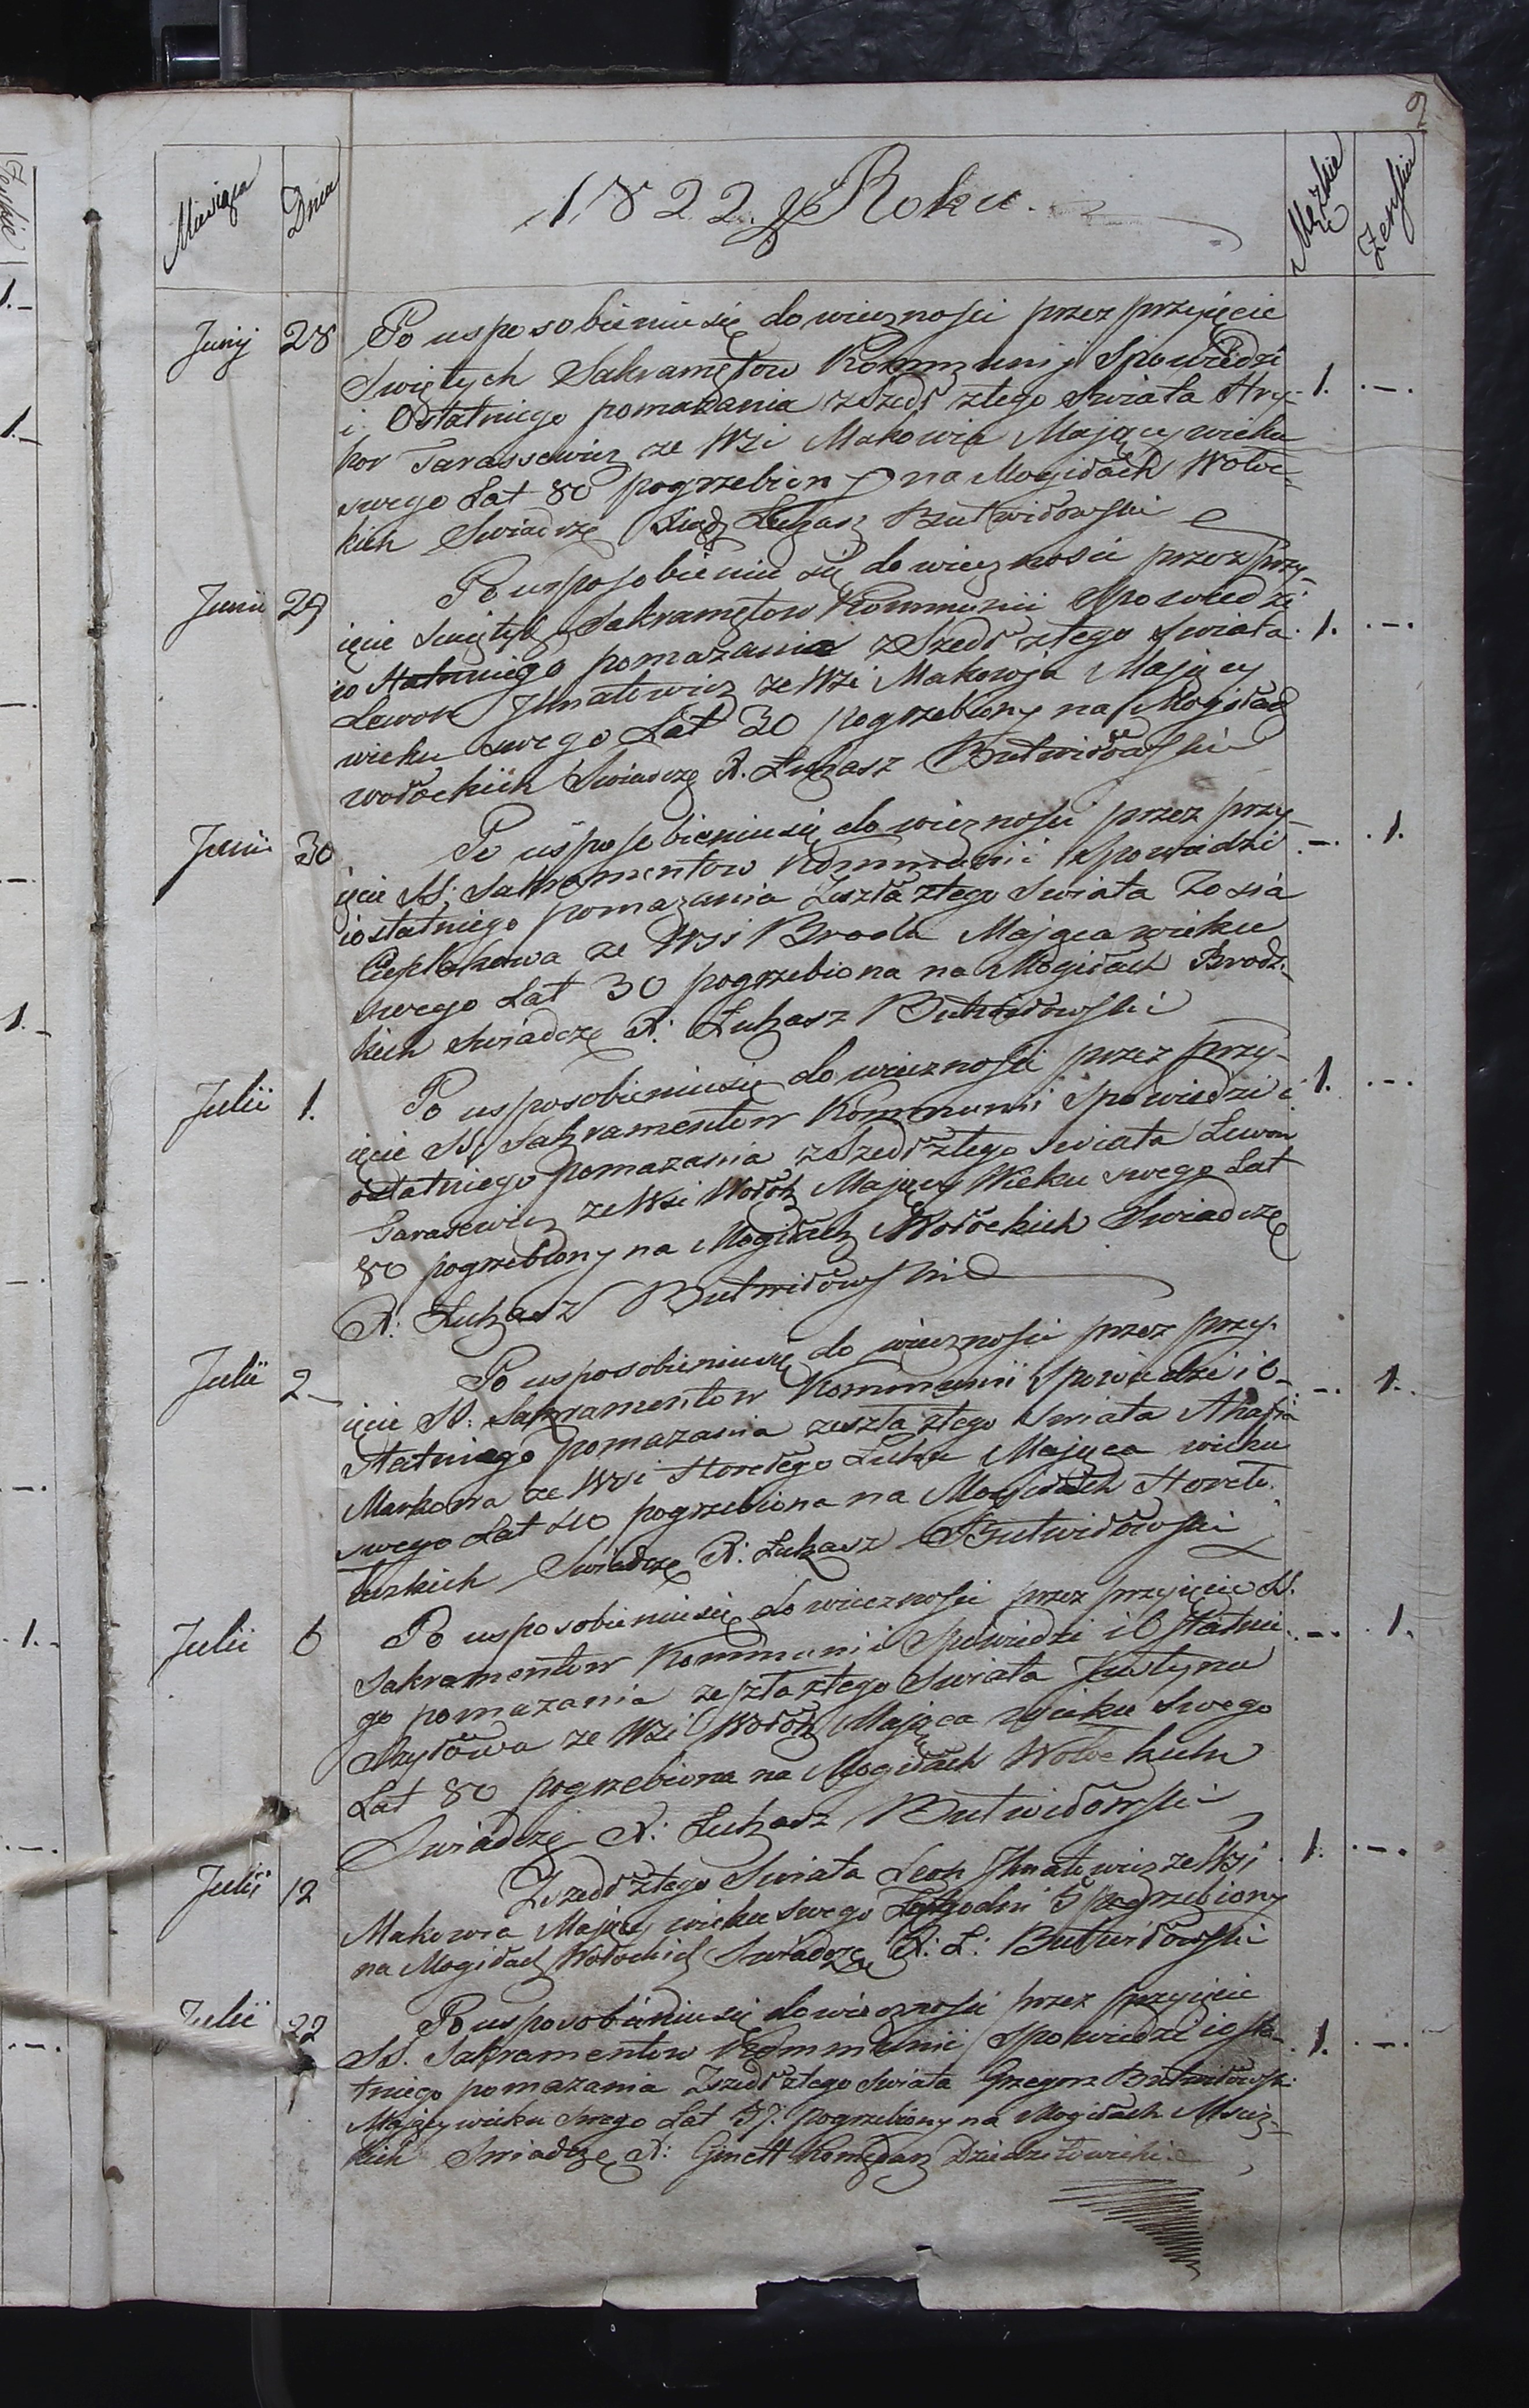 2
Miesiąca Dnia 1822 go Roku. Męzkie Zenskie
Junij 28 Po uspesobieniu się do wiecznosci przez przyięcie
Swiętych Sakramętow Kommunij Spowiedzi
i Ostatniego pomazania zszedł ztego Swiata Hry- 1. .-.
hor Tarassewicz ze Wsi Makowia Maiący wieku
swego Lat 80 pogrzebiony na Mogiłach Woloc-
kich Swiadczę Xiądz Łukasz Butwiłowski
Junii 29 Po usposobieniu się do wiecznosci przez przy-
ięcie Swiętych Sakramętow Kommunii Spowiedzi
i ostatniego pomazania zszedł ztego Swiata 1. .-.
Lewon Ihnatowicz ze Wsi Makowja Maiący
wieku swego Lat 30 pogrzebiony na Mogiłach
wołockich Swiadczę X. Łukasz Butwiłowski
Junii 30 Po usposobieniu się do wiecznosci przez przy- .-. 1.
ięcie SS. Sakramentow Kommunii Spowiedzi
i ostatniego pomazania Zeszła ztego Swiata Zosia
ze Wsi Broda Maiąca wieku
swego Lat 30 pogrzebiona na Mogiłach Brodz-
kich swiadczę X: Łukasz Butwiłowski
Julii 1. Po usposobieniu się do wiecznosci przez przy- 1. .-.
ięcie SS. Sakramentow Kommunii Spowiedzi i
ostatniego pomazania zszedł ztego Swiata Lewon
Tarasewicz ze Wsi Wołok Maiący Wieku swego Lat
80 pogrzebiony na Mogiłach Wołockich Swiadczę
X: Łukasz Butwiłowski
Julii 2 Po usposobieniu się do wiecznosci przez przy-
ięcie SS. Sakramentow Kommunii Spowiedzi i O- .-. 1.
statniego pomazania zeszła ztego Swiata Ahafia
Markowa ze Wsi Horełego Łuhu Maiąca wieku
swego Lat 40 pogrzebiona na Mogiłach Horeło
łuzkich Swiadczę X: Łukasz Butwiłowski
Julii 6 Po usposobieniu się do wiecznosci przez przyięcie SS.
Sakramentow Kommunii Spowiedzi i Ostatnie- .-. 1.
go pomazania zeszła ztego Swiata Justyna
ze Wsi Wołok Maiąca wieku Swego
Lat 80 pogrzebiona na Mogiłach Wołockich
Swiadczę X: Łukasz Butwiłowski
Julii 12 Zszedł ztego Swiata Leon Ihnatowicz ze Wsi 1. .-.
Makowia Maiący wieku swego 5 pogrzebiony
na Mogiłach Wołockich Swiadczę X: Ł: Butwiłowski
Julii 22 Po usposobieniu się do wiecznosci przez przyięcie
SS. Sakramentow Kommunii Spowiedzi i osta- 1. .-.
tniego pomazania Zszedł ztego Swiata Grzegorz Butwiłowski
Maiący wieku swego Lat 57. pogrzebiony na Mogiłach Msciz-
kich Swiadczę X: Ginett Komędarz Dziedziłowicki